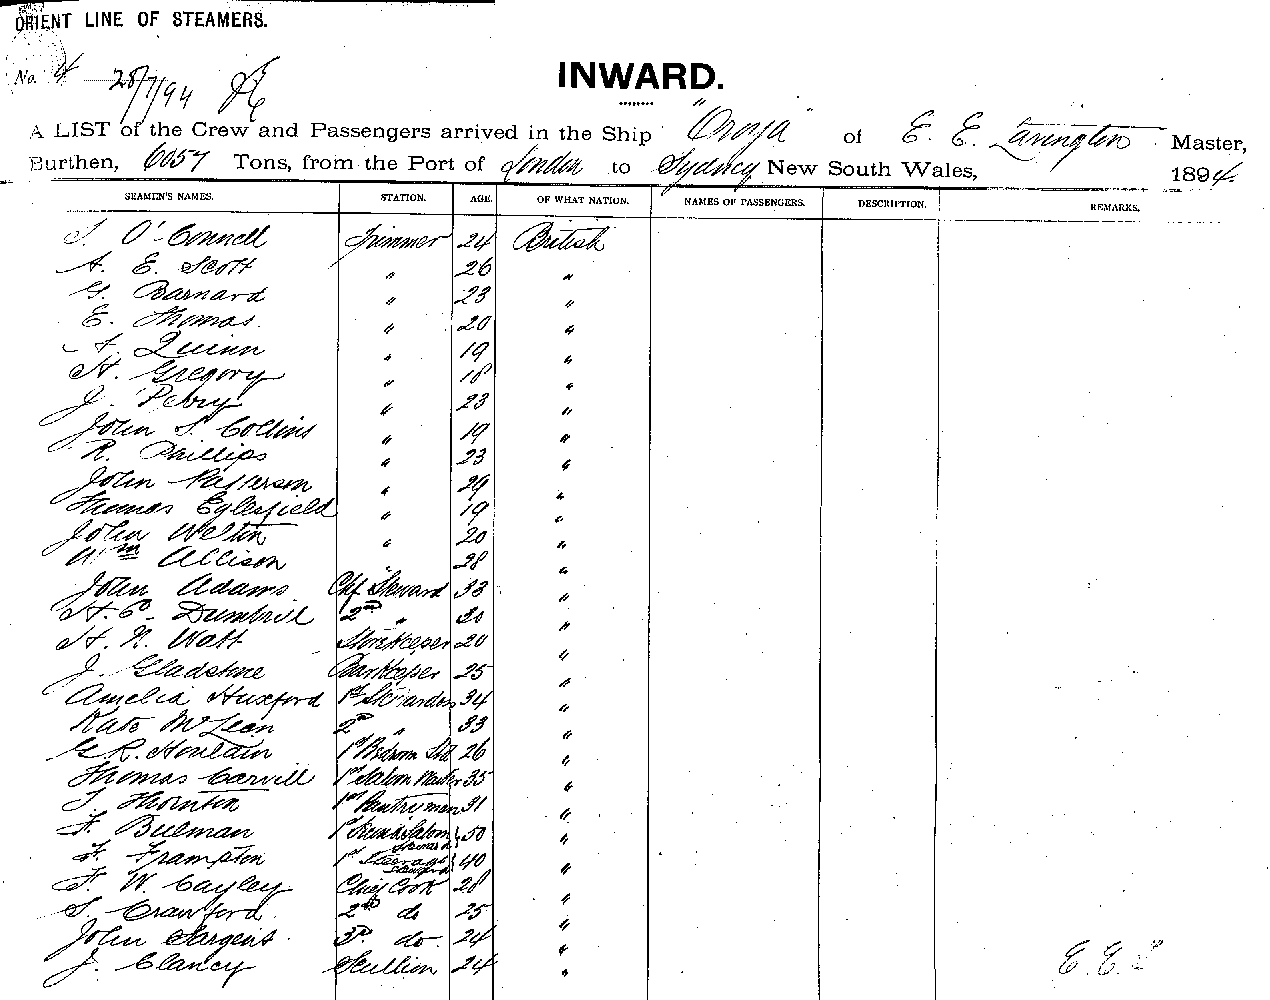 ORIENT LINE OF STEAMERS.
No. 4 28/7/94
INWARD.
A LIST of the Crew and Passengers arrived in the Ship "Oroya" of E. E. Master,
Burthen, 6057 Tons, from the Port of London to Sydney New South Wales, 1894.
SEAMEN'S NAMES. STATION. AGE. OF WHAT NATION. NAMES OF PASSENGERS. DESCRIPTION. REMARKS.
O'Connell Trimmer 24 British
A. E. Scott " 26 "
G. Barnard " 23 "
E. Thomas " 20 "
A. Quinn " 19 "
H. Gregory " 18 "
J. Perry " 23 "
John S. Collins " 19 "
R. Phillips " 23 "
John Patterson " 29 "
Thomas Eglesfield " 19 "
John Welton " 20 "
Wm Allison " 28 "
John Adams Chf Steward 33 "
H. C. Dumbril 2nd " "
H. N. Watt Storekeeper 20 "
J. Gladstone Barkeeper 25 "
Amelia Huxford 1st Stewardess 34 "
Kate McLean 2nd " 33 "
G. R. Houlain 1st Bedroom Std 26 "
Thomas Carvill 1st Saloon Waiter 35 "
Thornton 1st Pantryman 31 "
F. Bulman 1st Saloon Steward 50 "
F. Frampton 1st Steerage Steward 40 "
F. W. Cayley Chief Cook 28 "
S. Crawford 2nd do 25 "
John Sargent 3rd do. 24 "
J. Clancy Scullion 24 "
E. E.